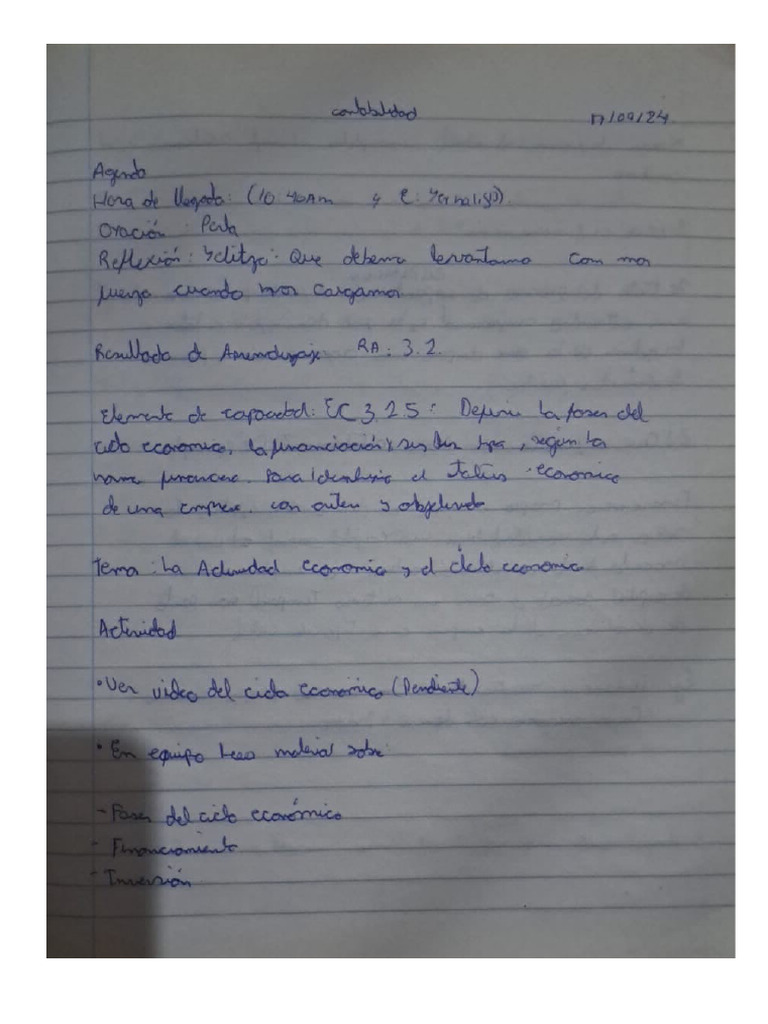 contabilidad 17/09/24
Agenda
Hora de llegada: (10 40Am y
Oración: Perla
Reflexión: Yelitza: Que debemo levantarno con mas
fuerza cuando nos cargamos
Resultado de Aprendizaje RA: 3.2.
Elemento de capacidad: EC 3.2.5: Definir la fases del
ciclo economico, la financiación y sus tipo, según la
norma financiera. Para identificar el economico
de una empresa. con orden y objetividad
Tema: La Actividad economica y el ciclo economico
Actividad
•Ver video del ciclo economico (Pendiente)
•En equipo Leer material sobre:
-Fases del ciclo económico
-Financiamiento
-Inversión